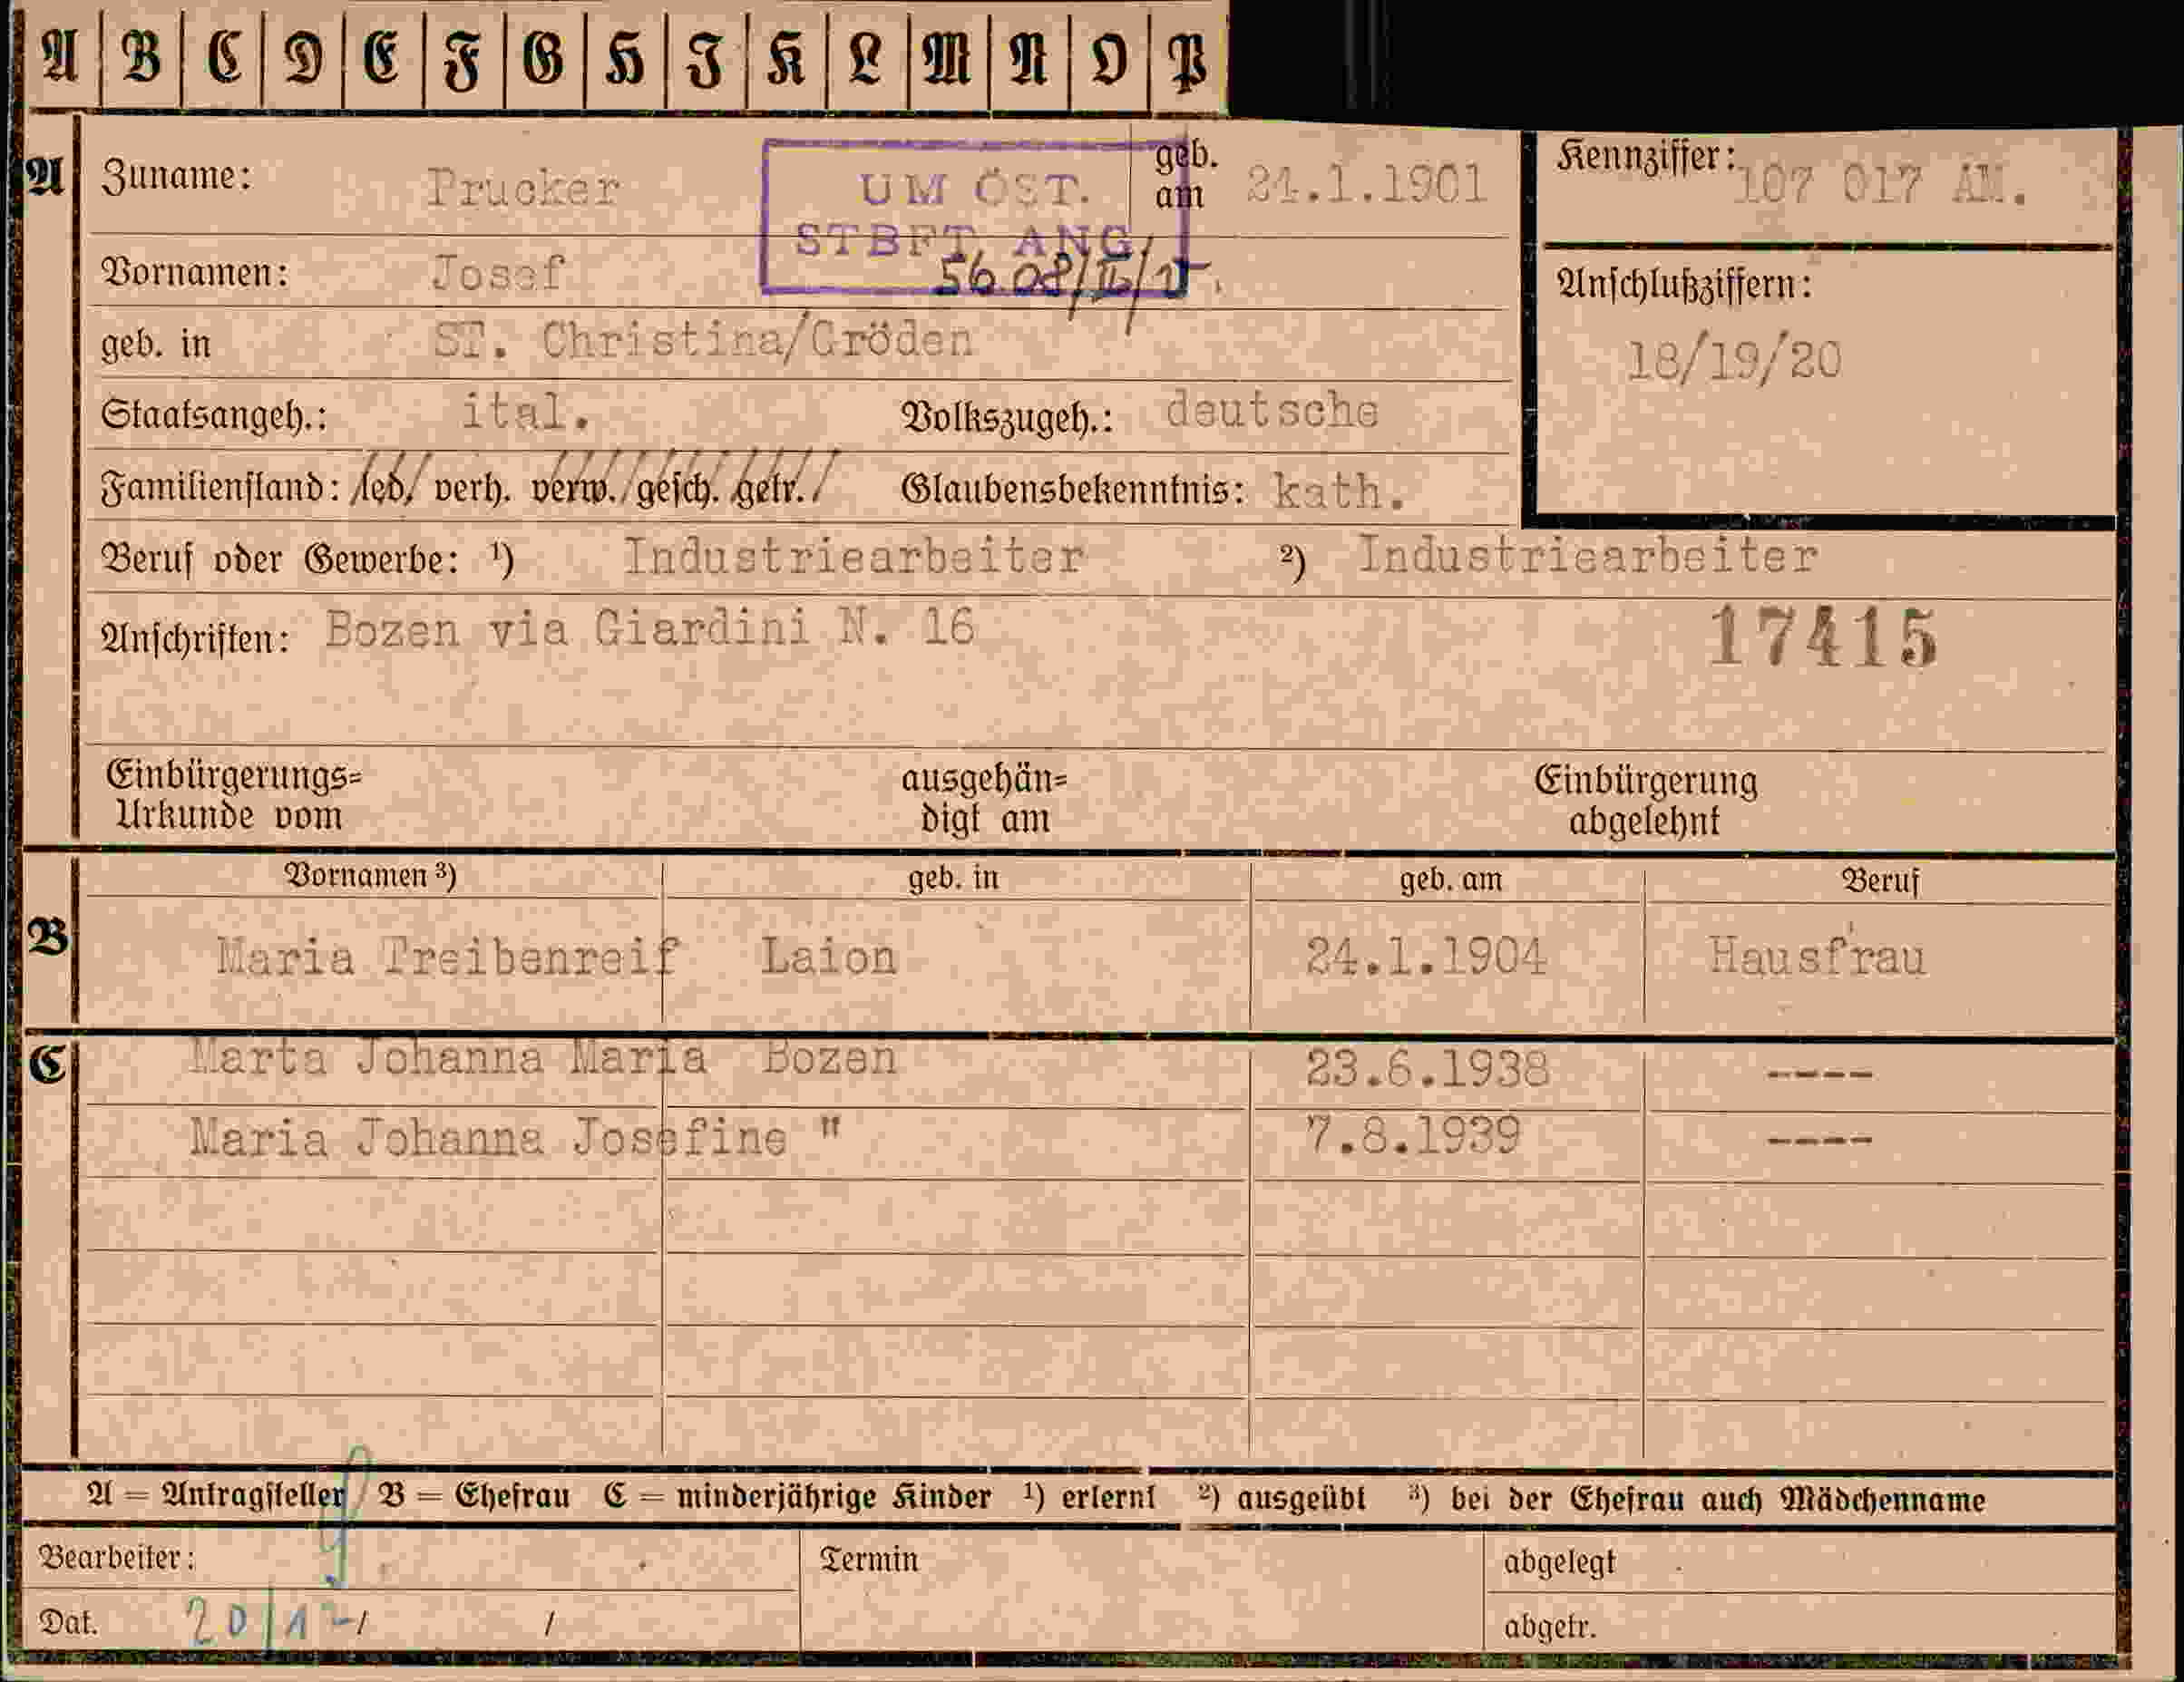 A B C D E F G H I K L M N O P
A Zuname: Prucker geb. am 21.1.1901 Kennziffer: 107 017 AM.
UM ÖST.
STBFT. ANG.
Vornamen: Josef 56 08/II/ Anschlußziffern:
geb. in ST. Christina/Gröden 18/19/20
Staatsangeh.: ital. Volkszugeh.: deutsche
Familienstand: led. verh. verw. gesch. getr. Glaubensbekenntnis: kath.
Beruf oder Gewerbe: ¹) Industriearbeiter ²) Industriearbeiter
Anschriften: Bozen via Giardini N. 16 17415
Einbürgerungs= ausgehän= Einbürgerung
Urkunde vom digt am abgelehnt
Vornamen ³) geb. in geb. am Beruf
B Maria Treibenreif Laion 24.1.1904 Hausfrau
C Marta Johanna Maria Bozen 23.6.1938 ----
Maria Johanna Josefine " 7.8.1939 ----
A = Antragsteller B = Ehefrau C = minderjährige Kinder ¹) erlernt ²) ausgeübt ³) bei der Ehefrau auch Mädchenname
Bearbeiter: Termin abgelegt
Dat. 20/1 / / abgetr.